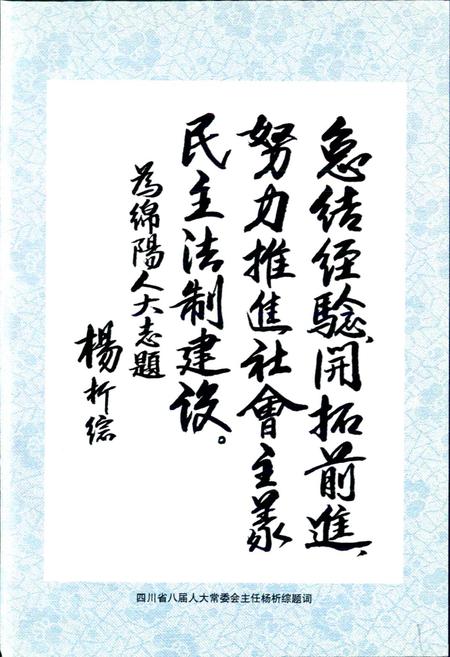 总结经驗,開拓前進,
努力推進社會主義
民主法制建设。
為绵陽人大志題
楊析综
四川省八届人大常委会主任杨析综题词